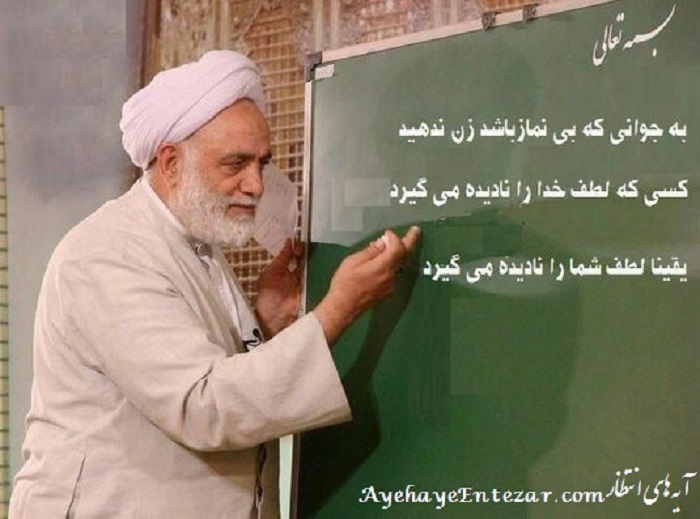 بسمه تعالی
به جوانی که بی نمازباشد زن ندهید
کسی که لطف خدا را نادیده می گیرد
یقینا لطف شما را نادیده می گیرد
آیه های انتظار
AyehayeEntezar.com